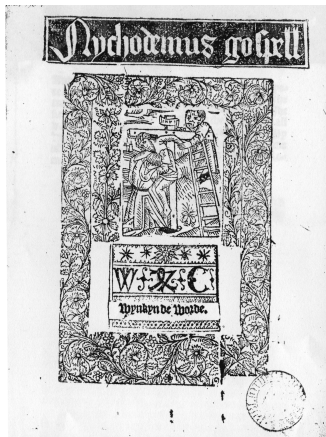 Nychodemus gospell
W C
Wynkyn de Worde.